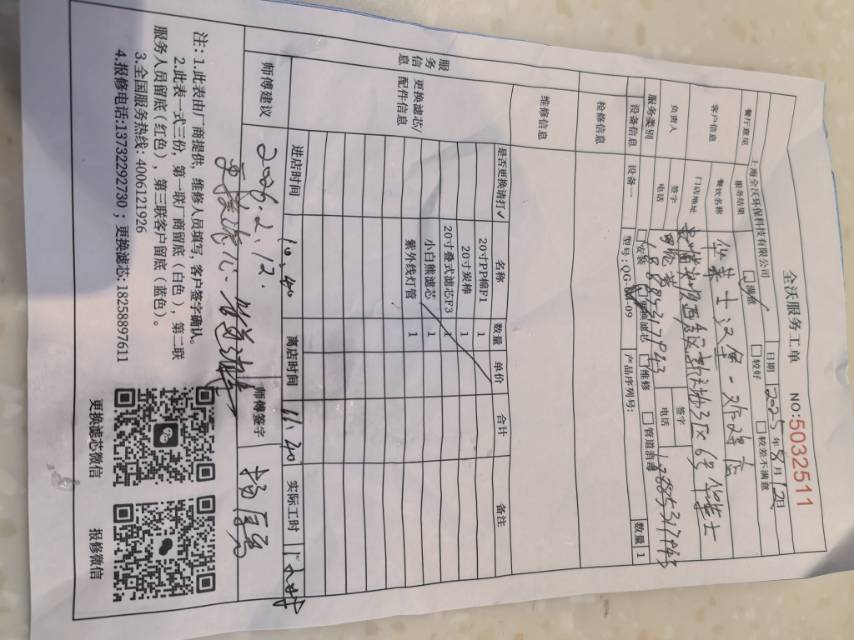 全沃服务工单
NO:5032511
上海全沃环保科技有限公司
日期 2025年8月12日
餐厅意见 服务结果 满意 较好 较差不满意
客户信息 餐饮名称 华莱士汉堡
门店地址 6号华莱士
负责人 签字 签字
电话 18885317943 电话 17885317943
服务类别 安装 更换滤芯 维修 管道清薄
设备信息 设备一 型号:QG- -09 产品序列号: 数量 1
检修信息
维修信息
服务信息
更换滤芯/配件信息
是否更换请打✓ 名称 数量 单价 合计 备注
20寸PP棉F1 1
20寸炭棒 1
20寸叠式滤芯F3 1
小白熊滤芯 1
紫外线灯管 1
进店时间 10:40 离店时间 11:20 实际工时
师傅建议 2026.2.12. 师傅签字
注:1.此表由厂商提供,维修人员填写,客户签字确认。
2.此表一式三份,第一联厂商留底(白色),第二联
服务人员留底(红色),第三联客户留底(蓝色)。
3.全国服务热线:4006121926
4.报修电话:13732292730;更换滤芯:18258897611
更换滤芯微信
报修微信